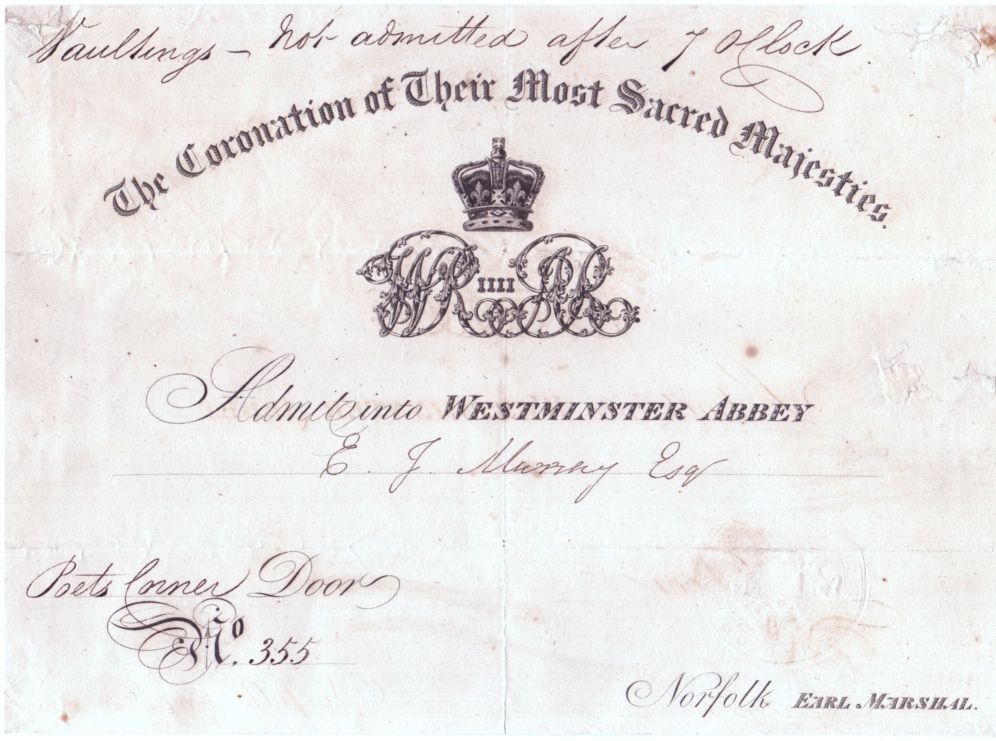 Vaultings – Not admitted after 7 O'Clock
The Coronation of Their Most Sacred Majesties.
WR IIII AR
Admit into WESTMINSTER ABBEY
E. J. Murray Esqr
Poets Corner Door
No. 355
Norfolk EARL MARSHAL.